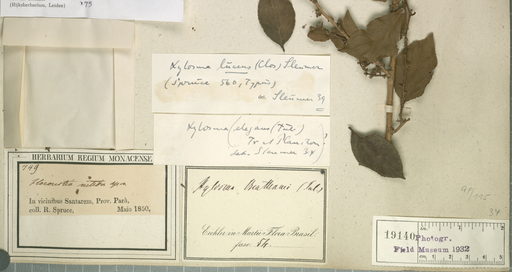 (Rijksherbarium, Leiden) 175
Xylosma lucens (Clos) Sleumer
(Spruce 560, Typus)
Sleumer 39
Xylosma elegans (Tul.)
Tr. et Planchon?
Sleumer 34
HERBARIUM REGIUM MONACENSE
749
Flacourtia nitida
In vicinibus Santarem, Prov. Parà,
coll. R. Spruce, Maio 1850.
Xylosma Benthamii (Tul.)
Eichler in Martii Flora Brasil.
fasc. 54.
34
19140 Photogr.
Field Museum 1932